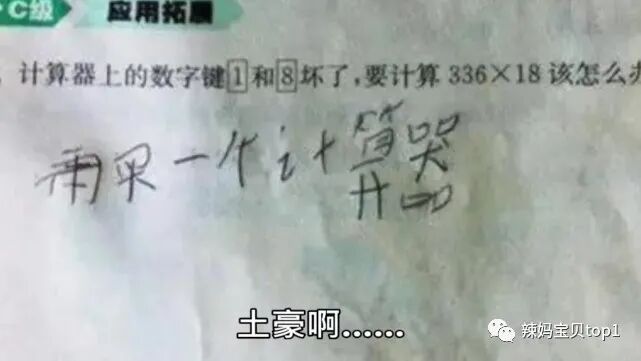 C级 应用拓展
计算器上的数字键1和8坏了,要计算336×18该怎么办
再买一个计算器
土豪啊......
辣妈宝贝top1